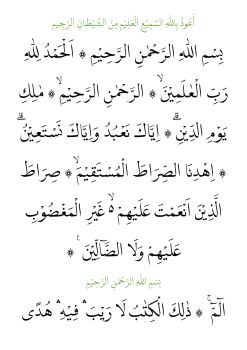 أَعُوذُ بِاللهِ السَّمِيْعِ الْعَلِيْمِ مِنَ الشَّيْطَانِ الرَّجِيْمِ
بِسْمِ اللهِ الرَّحْمٰنِ الرَّحِيْمِ ۞ اَلْحَمْدُ لِلّٰهِ
رَبِّ الْعٰلَمِيْنَۙ ۞ الرَّحْمٰنِ الرَّحِيْمِۙ ۞ مٰلِكِ
يَوْمِ الدِّيْنِۗ ۞ اِيَّاكَ نَعْبُدُ وَاِيَّاكَ نَسْتَعِيْنُۗ
۞ اِهْدِنَا الصِّرَاطَ الْمُسْتَقِيْمَۙ ۞ صِرَاطَ
الَّذِيْنَ اَنْعَمْتَ عَلَيْهِمْ ەۙ غَيْرِ الْمَغْضُوْبِ
عَلَيْهِمْ وَلَا الضَّآلِّيْنَ ۞
بِسْمِ اللهِ الرَّحْمٰنِ الرَّحِيْمِ
الٓمّٓۚ ۞ ذٰلِكَ الْكِتٰبُ لَا رَيْبَۛ فِيْهِۛ هُدًى